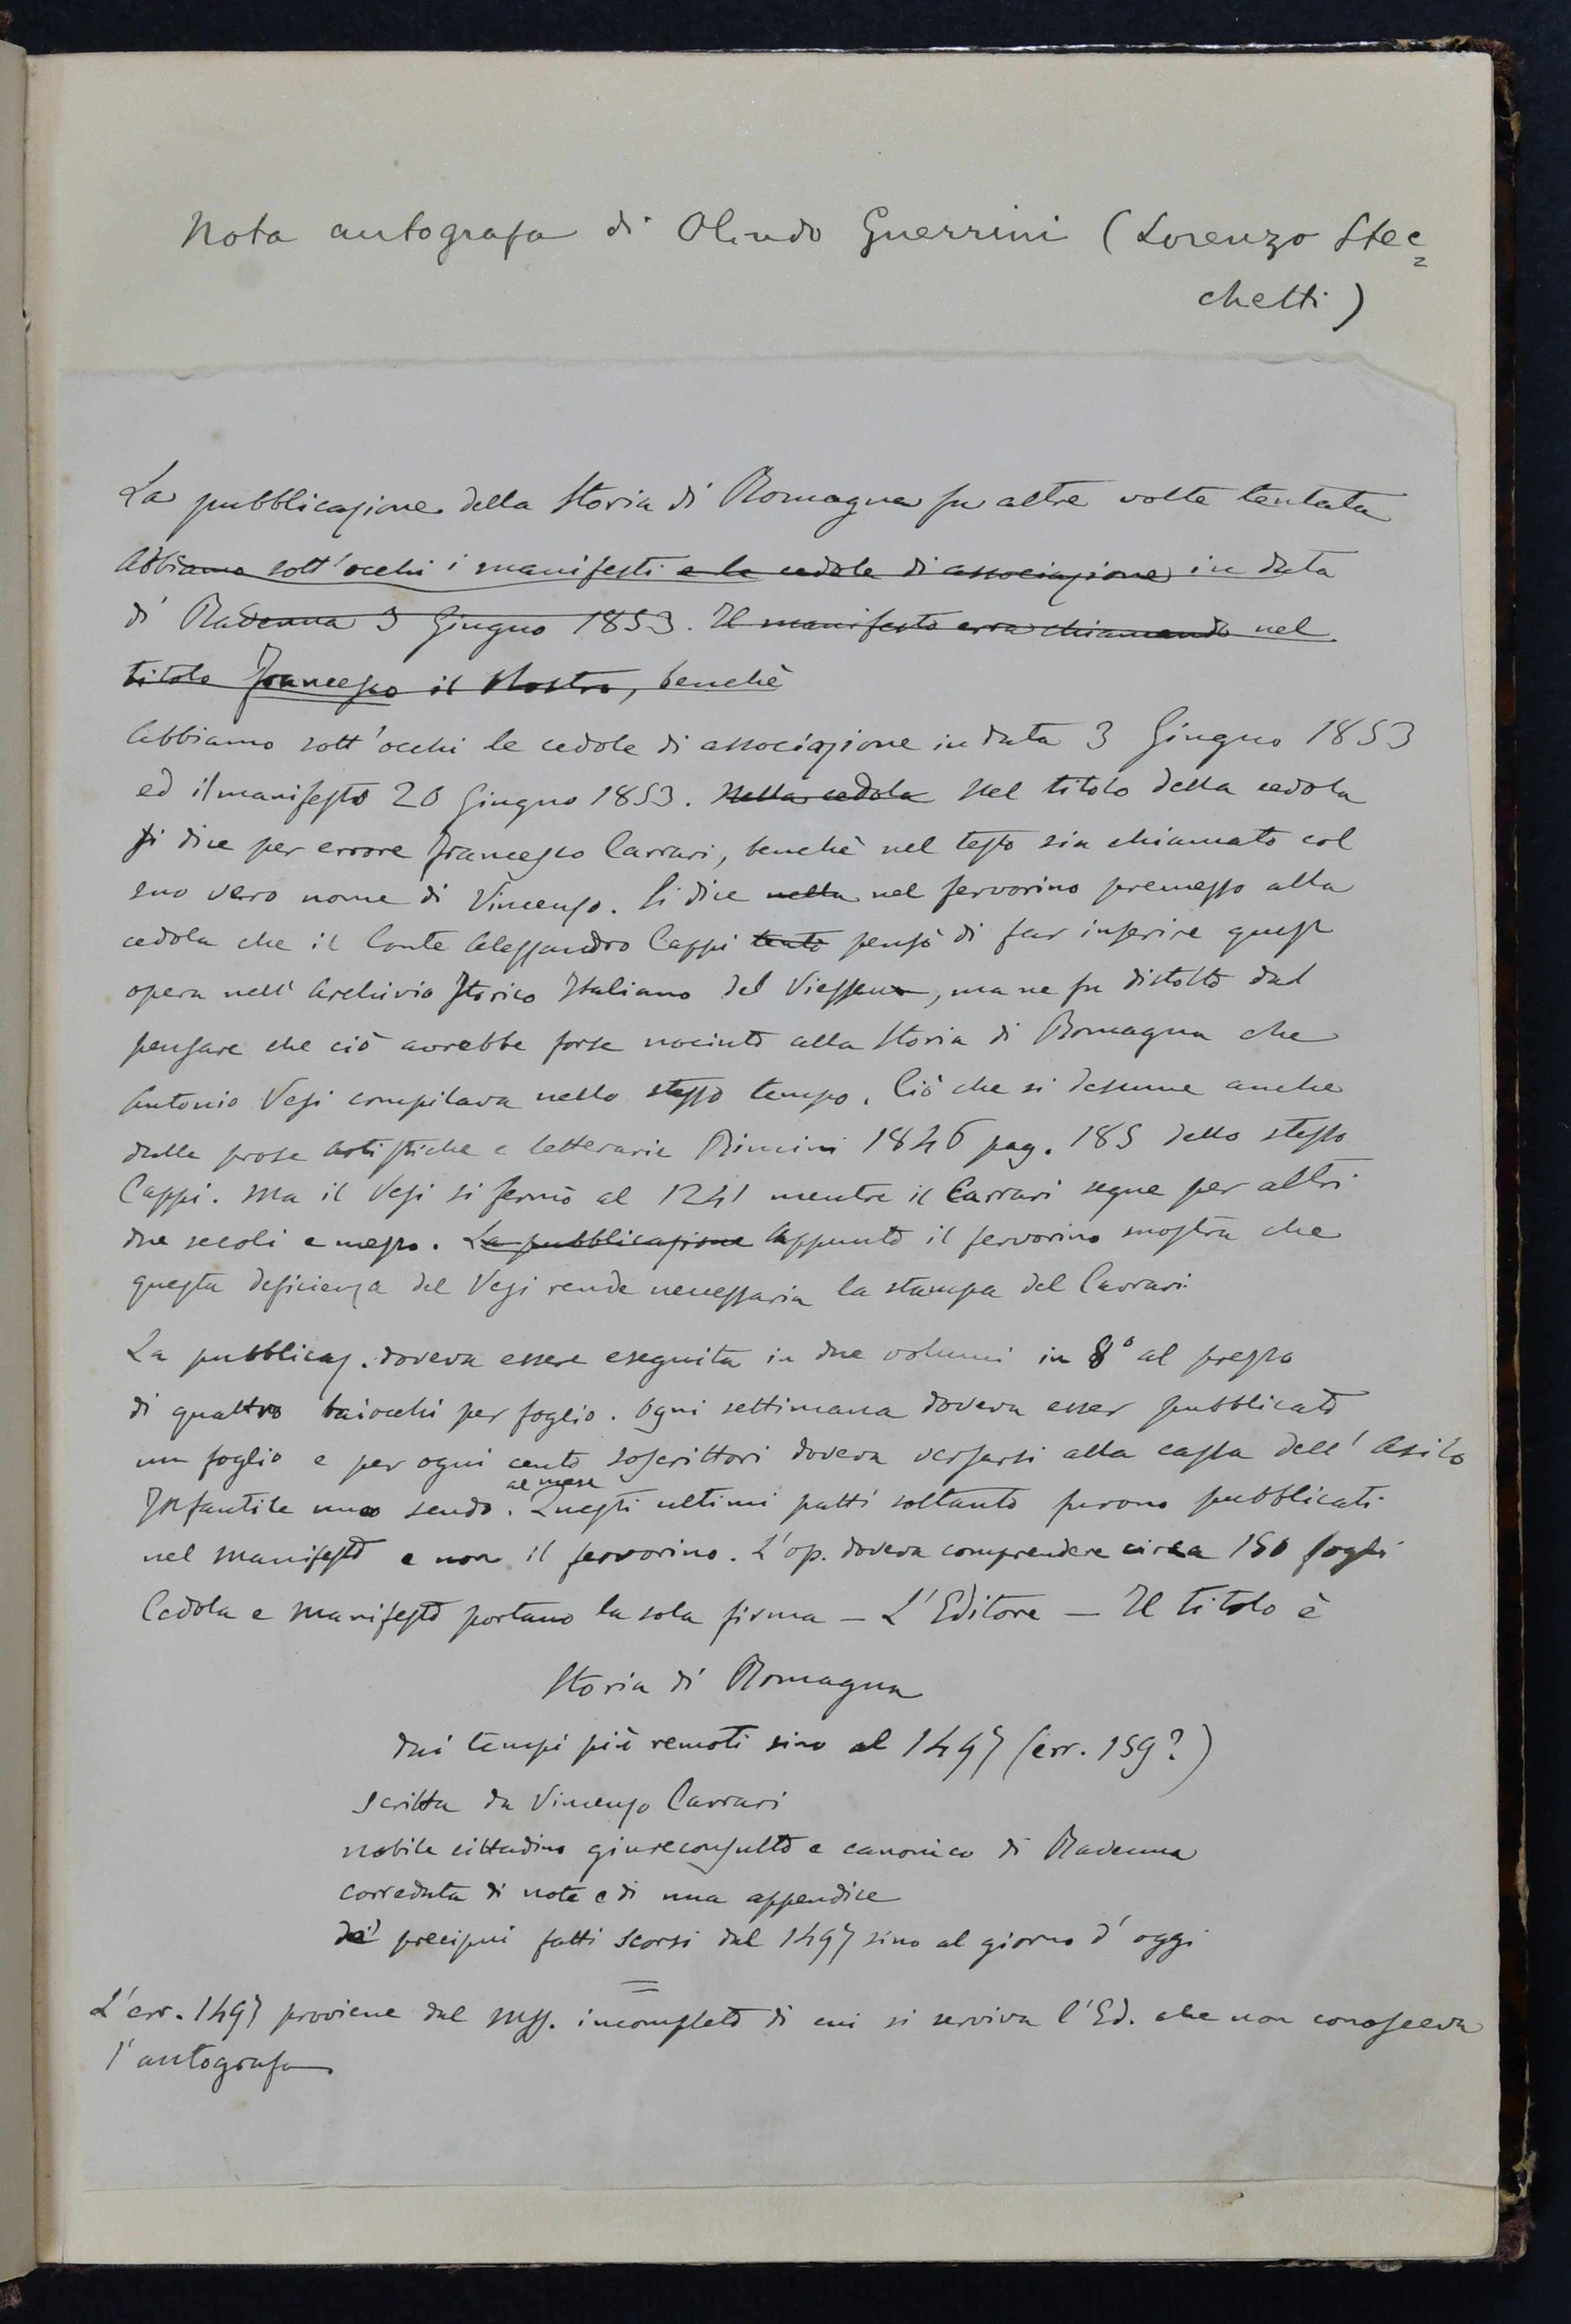 Nota autografa di Olindo Guerrini (Lorenzo Stec=
chetti)
La pubblicazione della Storia di Romagna fu altre volte tentata
Abbiamo sott'occhi i manifesti e le cedole di associazione in data
di Ravenna 3 Giugno 1853. Il manifesto erra chiamando nel
titolo Francesco il Nostro, benchè
Abbiamo sott'occhi le cedole di associazione in data 3 Giugno 1853
ed il manifesto 20 Giugno 1853. Nella cedola Nel titolo della cedola
si dice per errore Francesco Carrari, benchè nel testo sia chiamato col
suo vero nome di Vincenzo. Si dice nella nel fervorino premesso alla
cedola che il Conte Alessandro Cappi tentò pensò di far inserire quest
opera nell'Archivio Storico Italiano del Viesseux, ma ne fu distolto dal
pensare che ciò avrebbe forse nociuto alla Storia di Romagna che
Antonio Vesi compilava nello stesso tempo. Ciò che si desume anche
dalle prose artistiche e letterarie Rimini 1846 pag. 185 dello stesso
Cappi. Ma il Vesi si fermò al 1241 mentre il Carrari segue per altri
due secoli e mezzo. La pubblicazione Appunto il fervorino mostra che
questa deficienza del Vesi rende necessaria la stampa del Carrari.
La pubblicaz. doveva essere eseguita in due volumi in 8° al prezzo
di quattro baiocchi per foglio. Ogni settimana doveva esser pubblicato
un foglio e per ogni cento soscrittori doveva versarsi alla cassa dell'Asilo
Infantile uno scudo al mese. Questi ultimi patti soltanto furono pubblicati
nel Manifesto e non il fervorino. L'op. doveva comprendere circa 150 fogli
Cedola e Manifesto portano la sola firma — L'Editore — Il titolo è
Storia di Romagna
dai tempi più remoti sino al 1497 (err. 159?)
scritta da Vincenzo Carrari
nobile cittadino giureconsulto e canonico di Ravenna
corredata di note e di una appendice
de' precipui fatti scorsi dal 1497 sino al giorno d'oggi
=
L'err. 1497 proviene dal mss. incompleto di cui si serviva l'Ed. che non conosceva
l'autografo